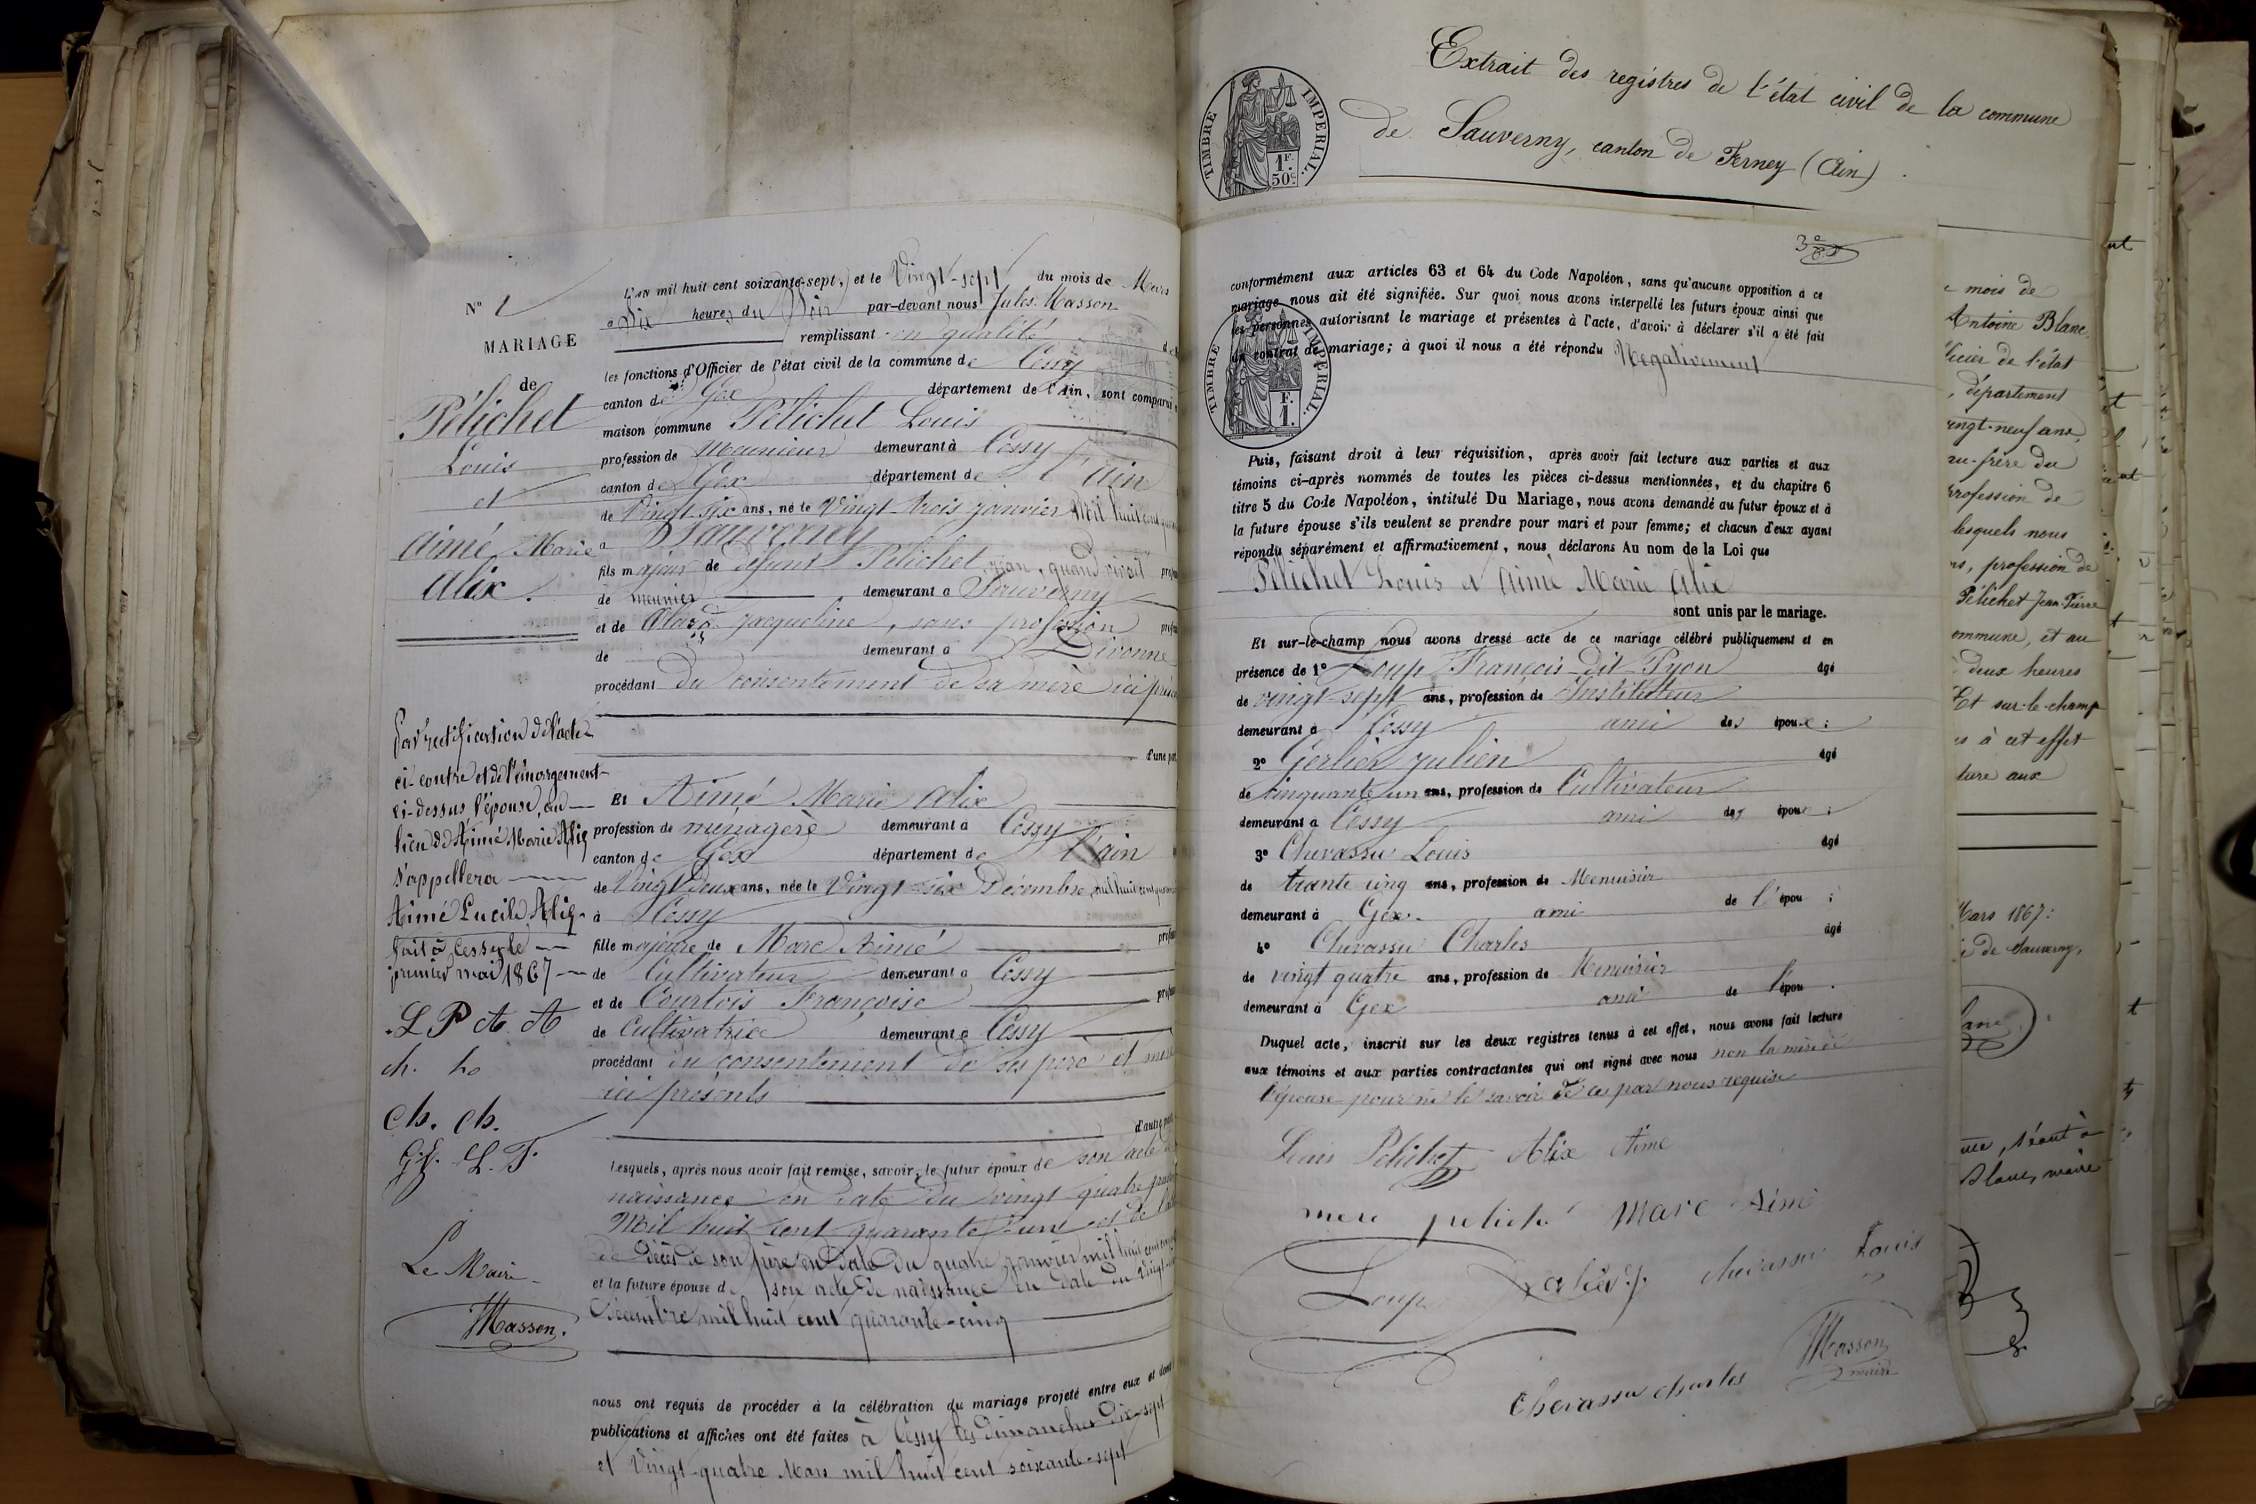 N° 1
MARIAGE
de
Pélichet
Louis
et
Aimé Marie
Alix.
Par rectification de l'acte
ci-contre et de l'émargement
ci-dessus, l'épouse, au
lieu de Aimé Marie Alix
s'appellera
Aimé Lucile Alix.
fait à Cessy le
premier mai 1867
L P A. A
ch. Lo
Ch. Ch.
L. F.
Le Maire
Masson.
L'AN mil huit cent soixante-sept, et le Vingt-sept du mois de Mars
à Dix heures du Soir par-devant nous Jules Masson
remplissant en qualité de
les fonctions d'Officier de l'état civil de la commune de Cessy
canton de Gex département de l'Ain, sont comparus
maison commune Pélichet Louis
profession de Meunier demeurant à Cessy
canton de Gex département de l'Ain
de Vingt-six ans, né le Vingt-trois janvier Mil huit cent
à Sauverny
fils majeur de défunt Pélichet, jean, quand vivait
de meunier demeurant à Sauverny
et de jacqueline, sans profession
de demeurant à Divonne
procédant du consentement de sa mère ici
d'une part
Et Aimé Marie Alix
profession de ménagère demeurant à Cessy
canton de Gex département de l'ain
de Vingt Deux ans, née le Vingt-six Décembre mil huit cent
à Cessy
fille majeure de Marc Aimé
de Cultivateur demeurant à Cessy
et de Courtois Françoise
de Cultivatrice demeurant à Cessy
procédant du consentement de ses père et mère
ici présents
d'autre part
Lesquels, après nous avoir fait remise, savoir, le futur époux de son acte de
naissance en date du vingt quatre
Mil huit cent quarante-un et de
de décès de son père en date du quatre janvier mil huit cent
et la future épouse de son acte de naissance en date du vingt
Décembre mil huit cent quarante-cinq
nous ont requis de procéder à la célébration du mariage projeté entre eux et dont
publications et affiches ont été faites à Cessy les dimanches dix-sept
et Vingt-quatre Mars mil huit cent soixante-sept
Extrait des registres de l'état civil de la commune
de Sauverny, canton de Ferney (Ain)
TIMBRE IMPERIAL.
1F.
50c
conformément aux articles 63 et 64 du Code Napoléon, sans qu'aucune opposition à ce
mariage nous ait été signifiée. Sur quoi nous avons interpellé les futurs époux ainsi que
les personnes autorisant le mariage et présentes à l'acte, d'avoir à déclarer s'il a été fait
un contrat de mariage; à quoi il nous a été répondu Négativement
TIMBRE IMPERIAL.
F.
1.
Puis, faisant droit à leur réquisition, après avoir fait lecture aux parties et aux
témoins ci-après nommés de toutes les pièces ci-dessus mentionnées, et du chapitre 6
titre 5 du Code Napoléon, intitulé Du Mariage, nous avons demandé au futur époux et à
la future épouse s'ils veulent se prendre pour mari et pour femme; et chacun d'eux ayant
répondu séparément et affirmativement, nous déclarons Au nom de la Loi que
Pélichet Louis et Aimé Marie Alix
sont unis par le mariage.
Et sur-le-champ nous avons dressé acte de ce mariage célébré publiquement et en
présence de 1° Loup François dit Pyon âgé
de vingt sept ans, profession de Instituteur
demeurant à Cessy ami des époux :
2° Gerlier julien âgé
de cinquante un ans, profession de Cultivateur
demeurant à Cessy ami des époux :
3° Chevassu Louis âgé
de trante cinq ans, profession de Menuisier
demeurant à Gex. ami de l'épou :
4° Chevassu Charles âgé
de vingt quatre ans, profession de Menuisier
demeurant à Gex ami de l'épou .
Duquel acte, inscrit sur les deux registres tenus à cet effet, nous avons fait lecture
aux témoins et aux parties contractantes qui ont signé avec nous non la mère de
l'épouse pour ne le savoir de ce par nous requise
Louis Pélichet Alix Aimé
mere pelichet Marc Aimé
Loup chevassu Louis
Chevassu charles
Masson
maire
mois de
Antoine Blanc
officier de l'état
, département
vingt-neuf ans,
du
profession de
lesquels nous
ns, profession de
Pélichet Jean-Pierre
commune, et au
à deux heures
Et sur-le-champ
à cet effet
lecture aux
Mars 1867:
de Sauverny,
séant à
Blanc, maire